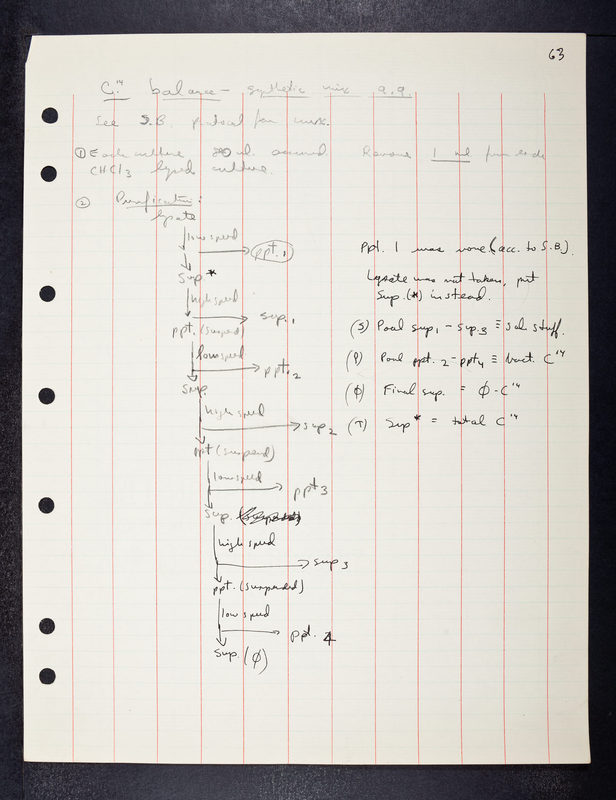 63
C¹⁴ balance - synthetic mix a.a.
See S.B. protocol for
① Each culture ml. Remove 1 ml from each
CHCl₃ lysed culture.
② Purification:
lysate
low speed
ppt. 1
Sup.*
high speed
sup. 1
ppt. (susped)
low speed
ppt. 2
Sup.
high speed
sup 2
ppt (suspend)
low speed
ppt 3
Sup.
high speed
sup 3
ppt. (suspended)
low speed
ppt. 4
Sup. (φ)
Ppt. 1 was none (acc. to S.B.).
Lysate was not taken, but
Sup. (*) instead.
(S) Pool sup 1 - sup. 3 ≡ sol. stuff.
(P) Pool ppt. 2 - ppt 4 ≡ bact. C¹⁴
(φ) Final sup. = φ - C¹⁴
(T) Sup* = total C¹⁴